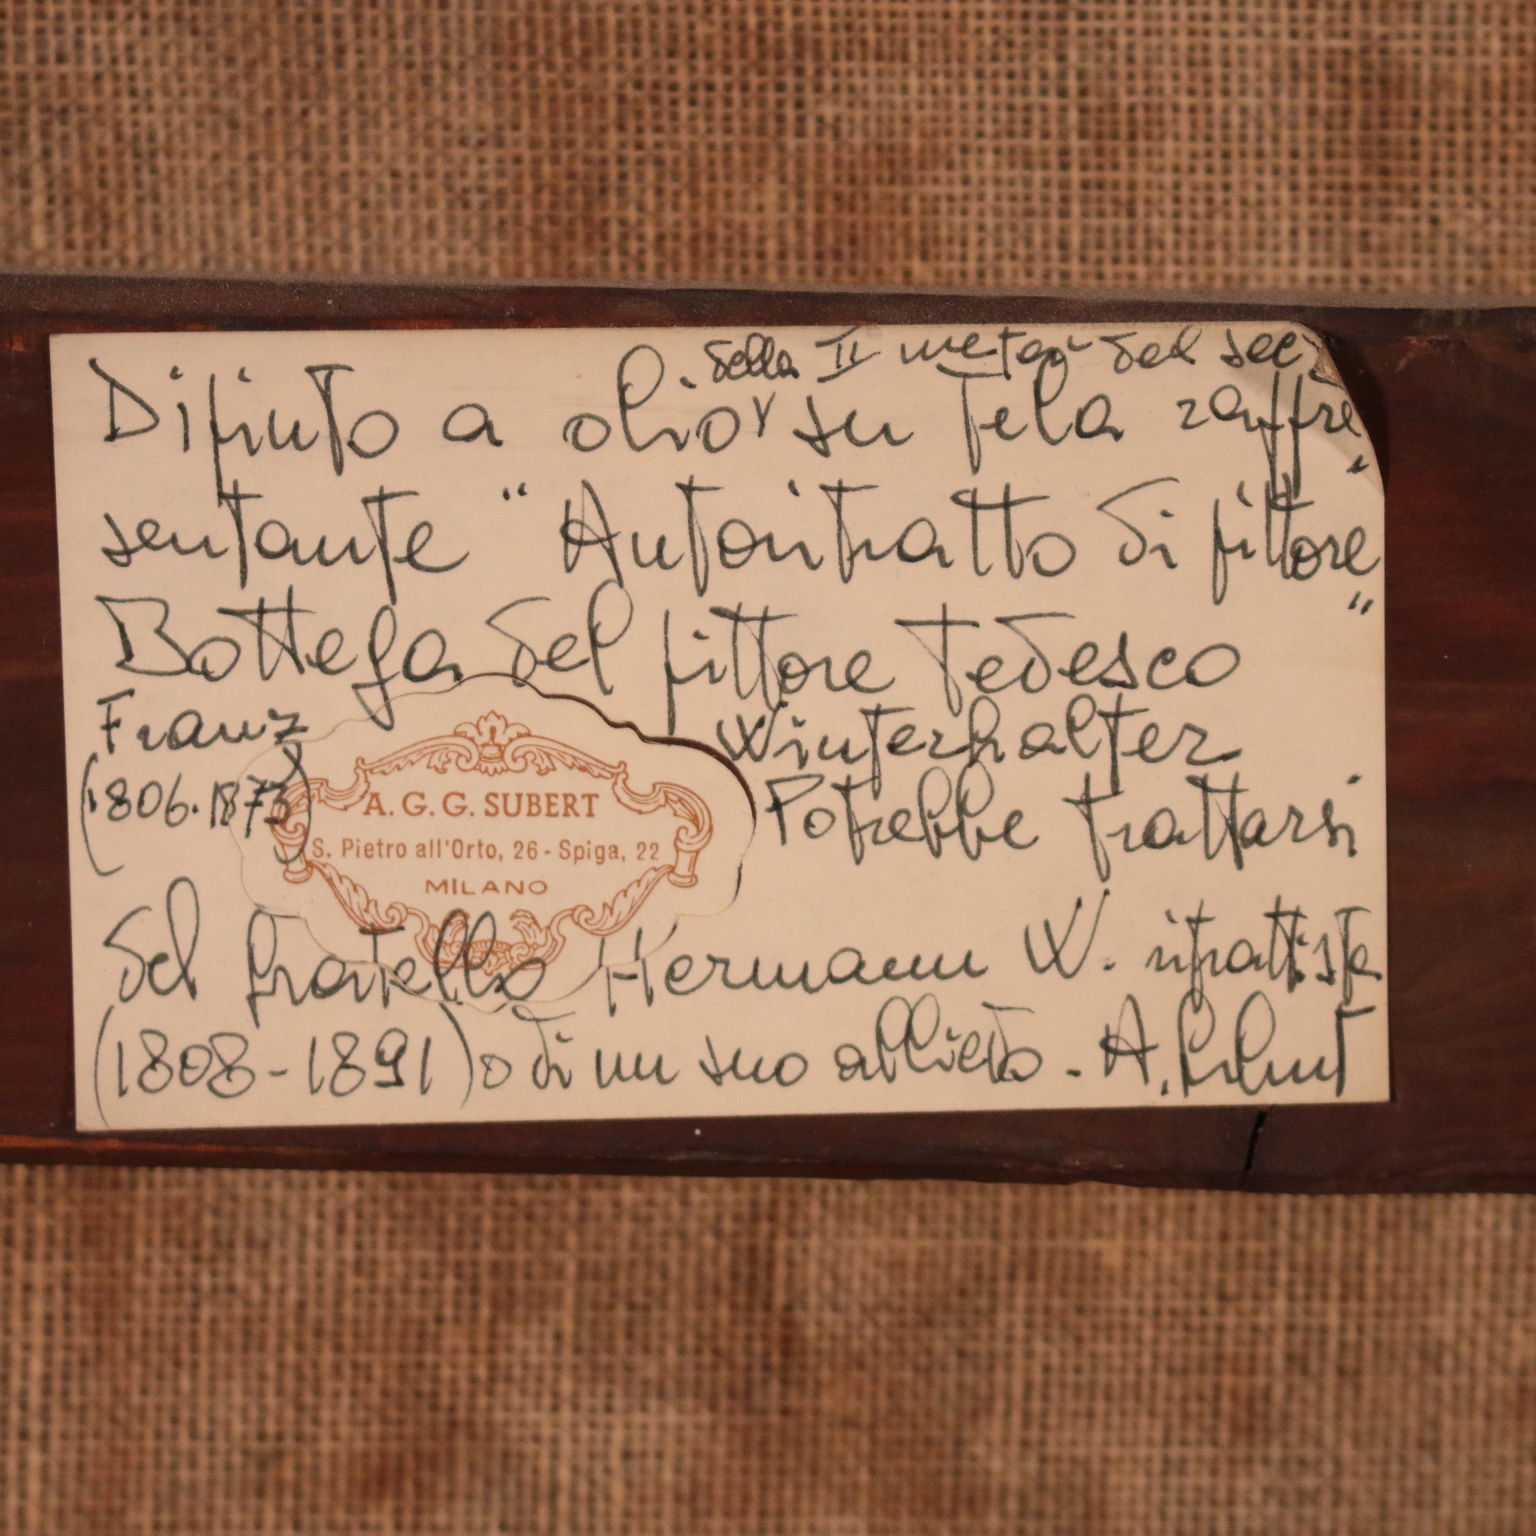 della II metà del sec.
Dipinto a olio su tela raffre
sentante "Autoritratto di pittore"
Bottega del pittore tedesco
Franz Winterhalter
(1806.1873) Potrebbe trattarsi
A. G. G. SUBERT
S. Pietro all'Orto, 26 - Spiga, 22
MILANO
del fratello Hermann W. ritrattista
(1808-1891) o di un suo allievo - A.